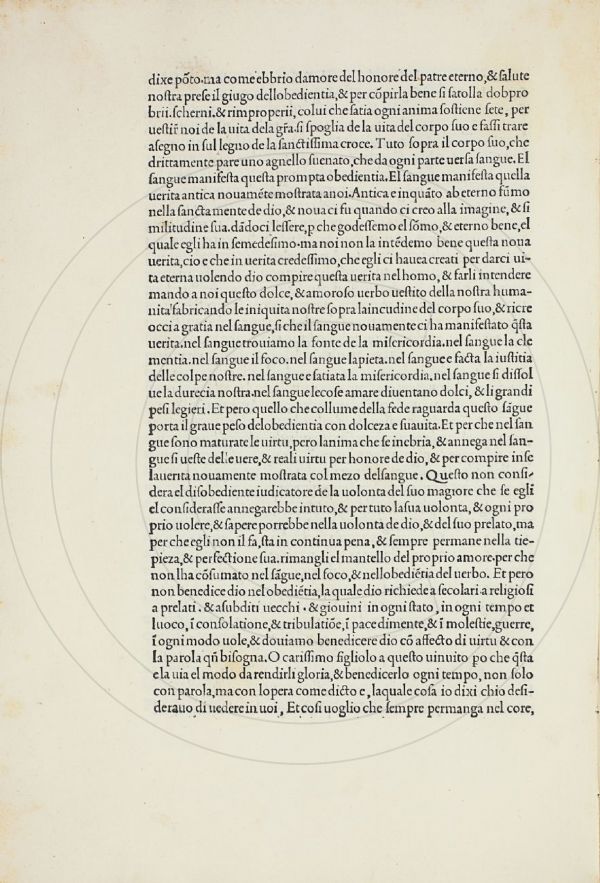 dixe põto.ma come ebbrio damore del honore del patre eterno,& ſalute
noſtra preſe il giugo dellobedientia,& per cõpirla bene ſi ſatolla dobpro
brii.ſcherni.& rimproperii, colui che ſatia ogni anima ſoſtiene ſete, per
ueſtir̃ noi de la uita dela gr̃a.ſi ſpoglia de la uita del corpo ſuo e faſſi trare
aſegno in ſul legno de la ſanctiſſima croce. Tuto ſopra il corpo ſuo,che
drittamente pare uno agnello ſuenato,che da ogni parte uerſa ſangue. El
ſangue manifeſta queſta prompta obedientia. El ſangue manifeſta quella
uerita antica nouaméte moſtrata anoi.Antica e inquãto ab eterno fũmo
nella ſancta mente de dio,& noua ci fu quando ci creo alla imagine, & ſi
militudine ſua.dãdoci leſſere,p che godeſſemo el ſõmo, & eterno bene,el
quale egli ha in ſemedeſimo.ma noi non la intẽdemo bene queſta noua
uerita,cio e che in uerita credeſſimo,che egli ci hauea creati per darci ui-
ta eterna uolendo dio compire queſta uerita nel homo, & farli intendere
mando a noi queſto dolce, & amoroſo uerbo ueſtito della noſtra huma-
nita fabricando le iniquita noſtre ſopra laincudine del corpo ſuo,& ricre
occi a gratia nel ſangue,ſi che il ſangue nouamente ci ha manifeſtato q̃ſta
uerita.nel ſangue trouiamo la fonte de la miſericordia.nel ſangue la cle
mentia.nel ſangue il foco.nel ſangue lapieta.nel ſangue e facta la iuſtitia
delle colpe noſtre. nel ſangue e ſatiata la miſericordia.nel ſangue ſi diſſol
ue la durecia noſtra.nel ſangue lecoſe amare diuentano dolci, & li grandi
peſi legieri. Et pero quello che collume della fede raguarda queſto ſãgue
porta il graue peſo delobedientia con dolceza e ſuauita. Et per che nel ſan
gue ſono maturate le uirtu, pero lanima che ſe inebria, & annega nel ſan-
gue ſi ueſte delle uere, & reali uirtu per honore de dio, & per compire inſe
lauerita nouamente moſtrata col mezo delſangue. Queſto non conſi-
dera el diſobediente iudicatore de la uolonta del ſuo magiore che ſe egli
el conſideraſſe annegarebbe intuto, & per tuto la ſua uolonta, & ogni pro
prio uolere, & ſapere porrebbe nella uolonta de dio, & del ſuo prelato, ma
per che egli non il fa, ſta in continua pena, & ſempre permane nella tie-
pieza, & perfectione ſua. rimangli el mantello del proprio amore.per che
non lha cõſumato nel ſãgue,nel foco, & nellobediẽtia del uerbo. Et pero
non benedice dio nel obediẽtia, la quale dio richiede a ſecolari.a religioſi
a prelati. & aſubditi uecchi . & giouini in ogni ſtato, in ogni tempo et
luoco, ĩ conſolatione, & tribulatiõe, ĩ pace dimente, & ĩ moleſtie,guerre,
ĩ ogni modo uole,& douiamo benedicere dio cõ affecto di uirtu & con
la parola qñ biſogna. O cariſſimo figliolo a queſto uinuito po che q̃ſta
e la uia el modo da rendirli gloria, & benedicerlo ogni tempo, non ſolo
con parola,ma con lopera come dicto e , laquale coſa io dixi chio deſi-
derauo di uedere in uoi , Et coſi uoglio che ſempre permanga nel core,